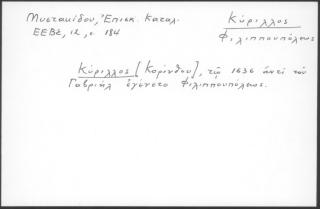 Μυστακίδου, Ἐπισκ. Καταλ.
ΕΕΒΣ, 12, σ. 184
Κύριλλος
Φιλιππουπόλεως
Κύριλλος [Κορίνθου], τῷ 1636 ἀντὶ τοῦ
Γαβριὴλ ἐγένετο Φιλιππουπόλεως.